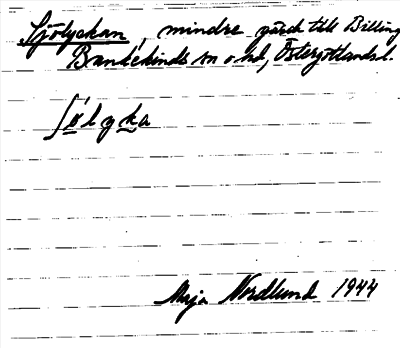 Sjölyckan, mindre gård till Billing
Bankekinds sn o hd, Östergötlands l.
ʃø̀lyka
Maja Nordlund 1944